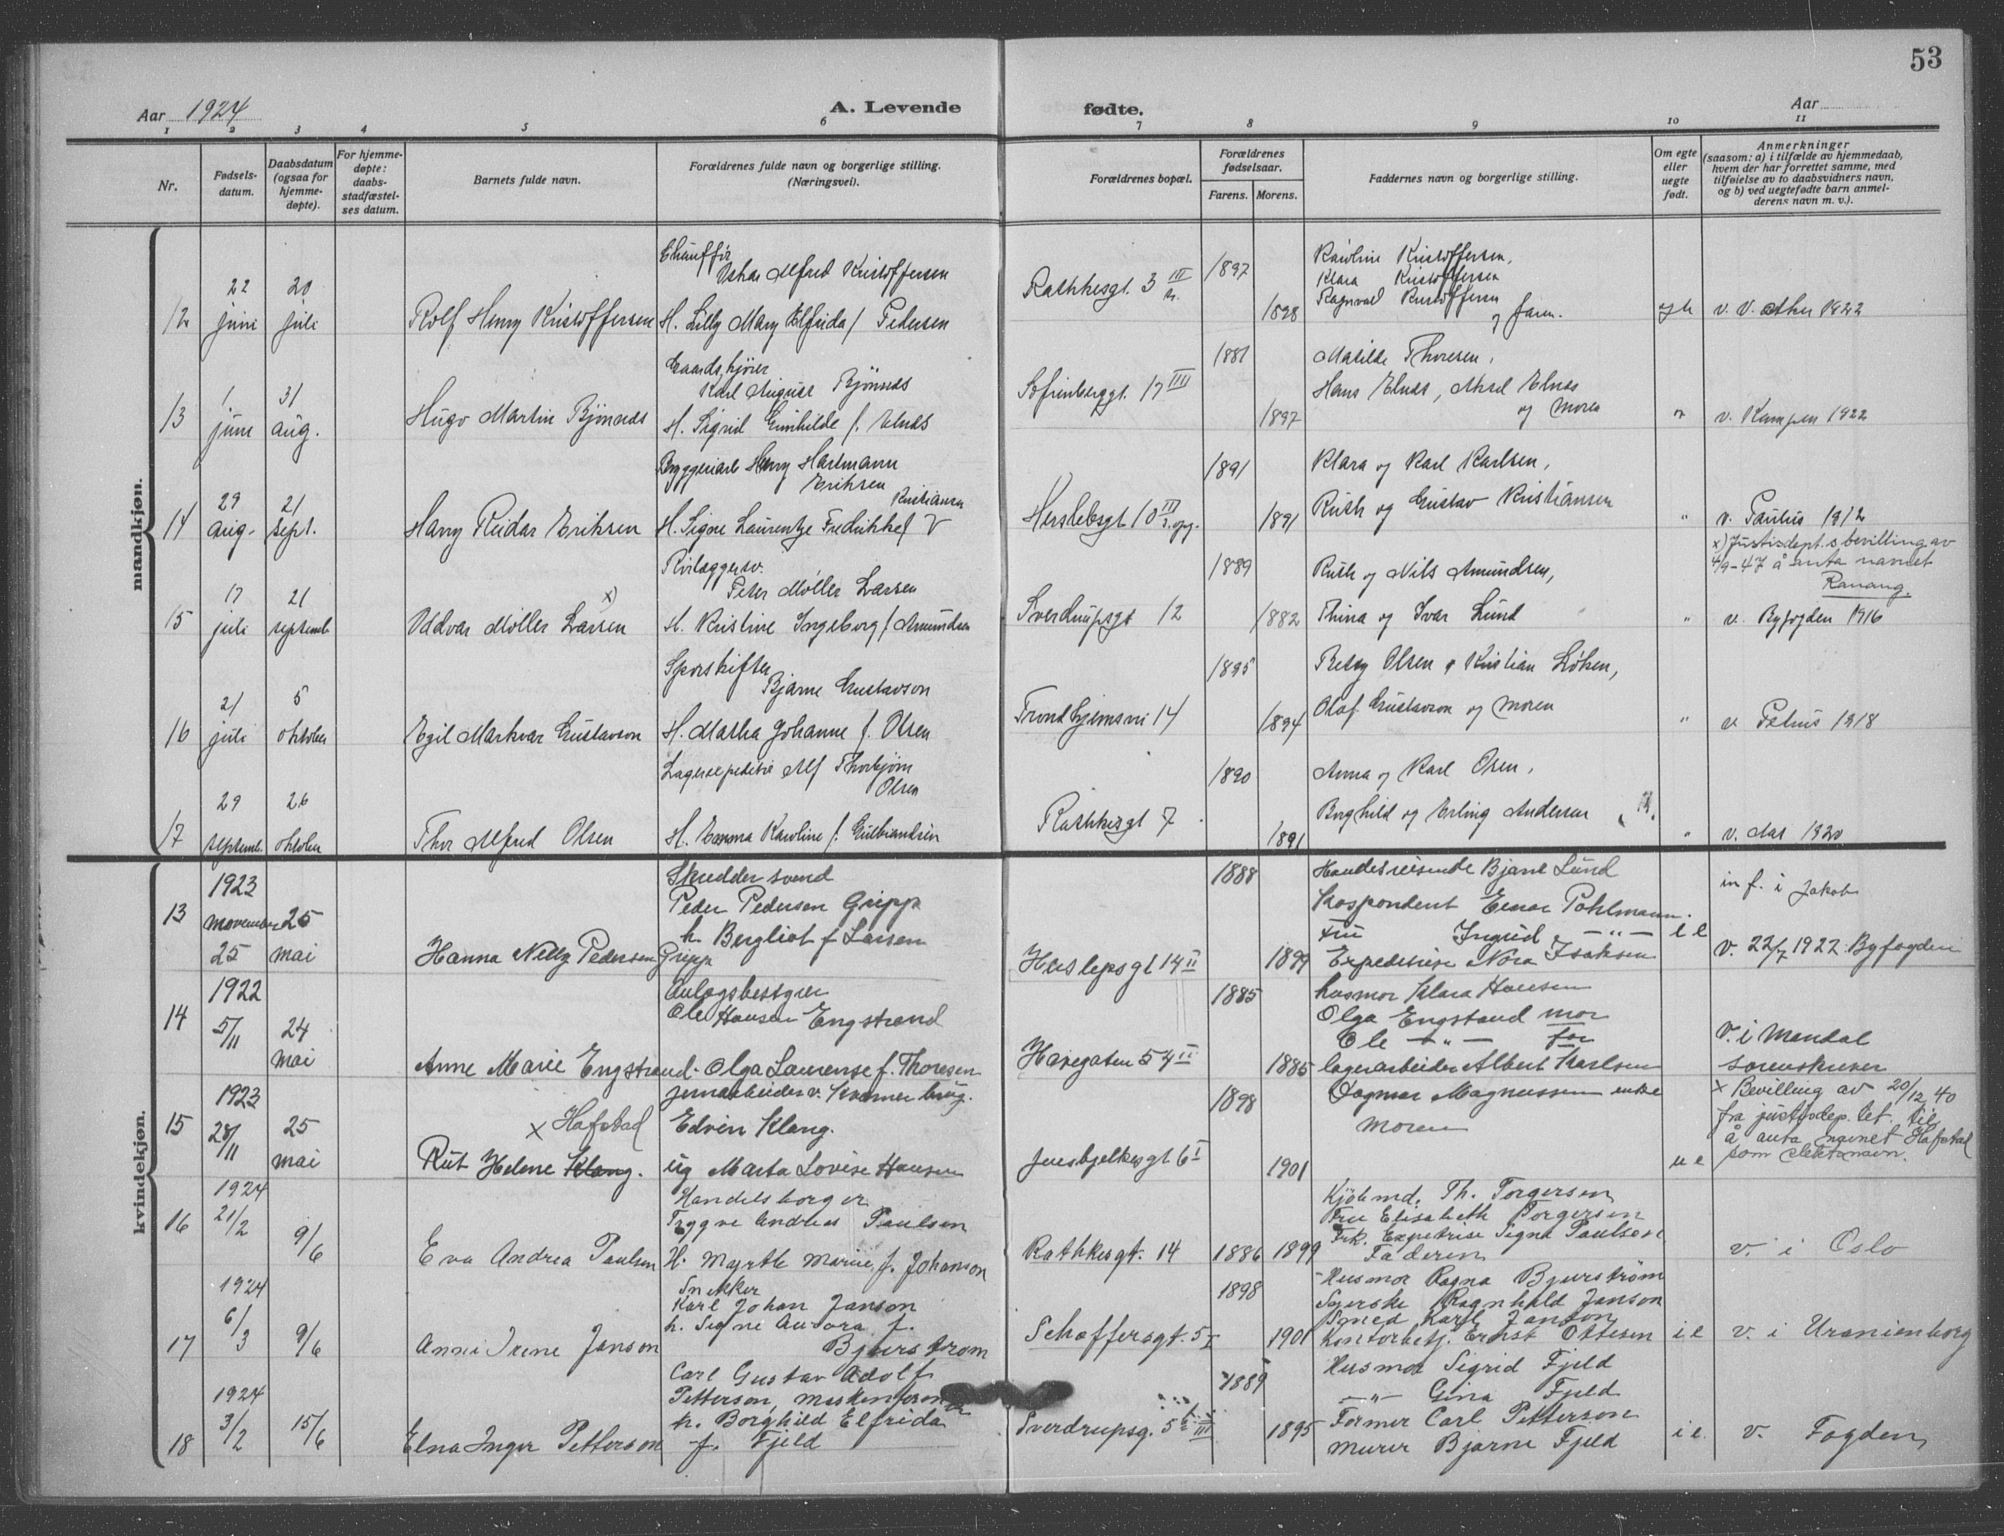 53
Aar 1924
A. Levende
fødte.
Aar
1 2 3 4 5 6 7 8 9 10 11
Nr.
Fødsels-
datum.
Daabsdatum
(ogsaa for
hjemme-
døpte).
For hjemme-
døpte:
daabs-
stadfæstel-
ses datum.
Barnets fulde navn.
Forældrenes fulde navn og borgerlige stilling.
(Næringsvei).
Forældrenes bopæl.
Forældrenes
fødselsaar.
Farens. Morens.
Faddernes navn og borgerlige stilling.
Om egte
eller
uegte
født.
Anmerkninger
(saasom: a) i tilfælde av hjemmedaab,
hvem der har forrettet samme, med
tilføielse av to daabsvidners navn,
og b) ved uegtefødte barn anmel-
derens navn m. v.).
mandkjøn.
12
22
juni
20
juli
Rolf Henry Kristoffersen
Chauffør
Oskar Alfred Kristoffersen
H. Lilly Mary Elfrida / Pedersen
Rathkesgt. 3 III
1897
1898
Karoline Kristoffersen,
Klara Kristoffersen
Ragnvald Kristoffersen
og faren.
v. V. Aker 1922
13
1
juni
31
aug.
Hugo Martin Bjönnes
Karl August Bjönnes
H. Sigrid Gunhilde f. Elnes
Sofienberggt. 17 III
1881
1897
Matilde Thoresen,
Hans Elnes, Aksel Elnes
og moren
"
v. Kampen 1922
14
29
aug.
21
sept.
Harry Reidar Eriksen
Bryggeriarb. Harry Hartmann
Eriksen
Kristiansen
H. Signe Laurentze Fredrikke f. V
Herslebsgt 10 III
1891
1891
Klara og Karl Karlsen,
Ruth og Gustav Kristiansen
"
v. Paulus 1912
15
17
juli
21
septemb
x)
Oddvar Møller Larsen
Rørlæggersv.
Peter Møller Larsen
H. Kristine Ingeborg f. Amundsen
Sverdrupsgt 12
1889
1882
Ruth og Nils Amundsen,
Thina og Ivar Lund
"
x) Justisdept.s bevilling av
4/9-47 å anta navnet
Ranang.
v. Byfogden 1916
16
21
juli
5
oktober
Egil Markvar Gustavson
Sporskifter
Bjarne Gustavson
H. Martha Johanne f. Olsen
Trondhjemsvei 14
1895
1894
Betsy Olsen & Kristian Løken,
Olaf Gustavson og moren
"
v. Petrus 1918
17
29
septemb.
26
oktober
Thor Alfred Olsen
Lagerexpeditør Alf Thorbjørn
Olsen
H. Emma Karoline f. Gulbrandsen
Rathkesgt 7
1890
1891
Anna og Karl Olsen,
Borghild og Erling Andersen
"
v. Aas 1920
kvindekjøn.
13
1923
november
25
25
mai
Hanna Nelly Pedersen Gripp
Skreddersvend
Peder Pedersen Gripp
h. Bergliot f Larsen
Herslepsgt 14 II
1888
1899
Handelsreisende Bjarne Lund
Korspondent Einar Pohlmann.
Fru Ingrid — " —
Expeditrise Nora Isaksen
i e
in f. i Jakob
V. 22/7 1922 Byfogden
14
1922
5/11
24
mai
Anne Marie Engstrand
Anlegsbestyrer
Ole Hansen Engstrand
Olga Laurense f. Thoresen
Havegaten 54 II
1885
1885
husmor Klara Hansen
Olga Engstand mor
Ole — " — far
lagerarbeider Albert Karlsen
V. i Mandal
sorenskriver
15
1923
28/11
25
mai
x Hafstad
Rut Helene Klang.
jernarbeider v. Kværner brug.
Edvin Klang.
ug Marta Lovise Hansen
Jensbjelkesgt 6 I
1898
1901
Dagmar Magnussen enke
Moren
u e
x Bevilling av 20/12 40
fra justisdep.tet. til
å anta navnet Hafstad
som slektsnavn.
16
1924
21/2
9/6
Eva Andrea Paulsen
Handelsborger
Trygve Andreas Paulsen
H. Myrtle Marine f. Johanson
Rathkesgt. 14
1886
1899
Kjöbmd. Th. Torgersen
Fru Elisabeth Torgersen
Frk. Expetrise Signe Paulson
Faderen
v. i Oslo
17
1924
6/3
9/6
Anni Irene Janson
Snekker
Karl Johan Janson
h. Signe Aurora f.
Bjurström
Schaffersgt. 5 I
1898
1901
Husmor Ragna Bjurström
Syerske Ragnhild Janson
Smed Karl Janson
Kontorbetj. Ernst Ottesen
i e
v. i Uranienborg
18
1924
3/2
15/6
Elna Inger Petterson
Carl Gustav Adolf
Petterson, maskinformer
h. Borghild Elfrida
f. Fjeld
Sverdrupsg. 5 b III
1889
1895
Husmor Sigrid Fjeld
— " — Gina Fjeld
Former Carl Petterson
Murer Bjarne Fjeld
i e.
v. Fogden